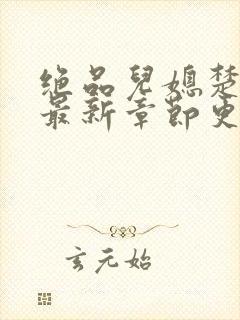 绝品兒媳楚
最新章節史
玄元始